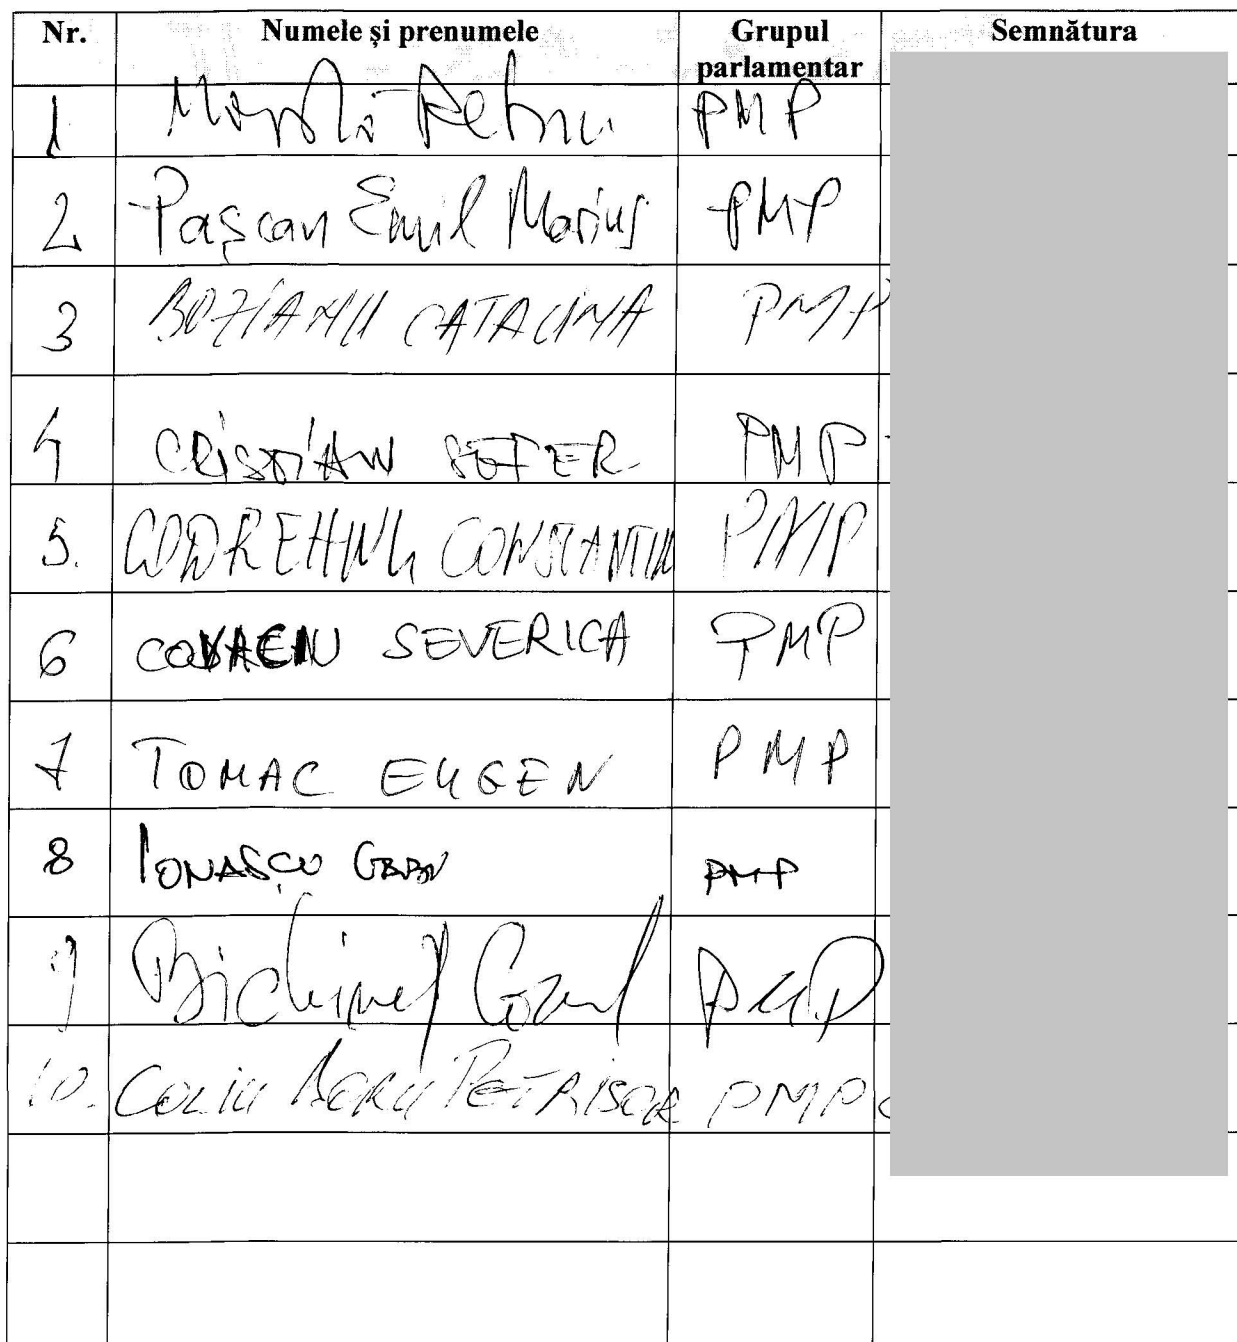 Nr. Numele și prenumele Grupul parlamentar Semnătura
1 Movilă Petru PMP
2 Pașcan Emil Marius PMP
3 BOZIANU CATALINA PMP
4 CRISTIAN SEFER PMP
5. CODREANU CONSTANTIN PMP
6 COVACIU SEVERICA PMP
7 TOMAC EUGEN PMP
8 IONAȘCU PMP
9 Bichineț Corneliu PMP
10. COLIU DORU PETRISOR PMP